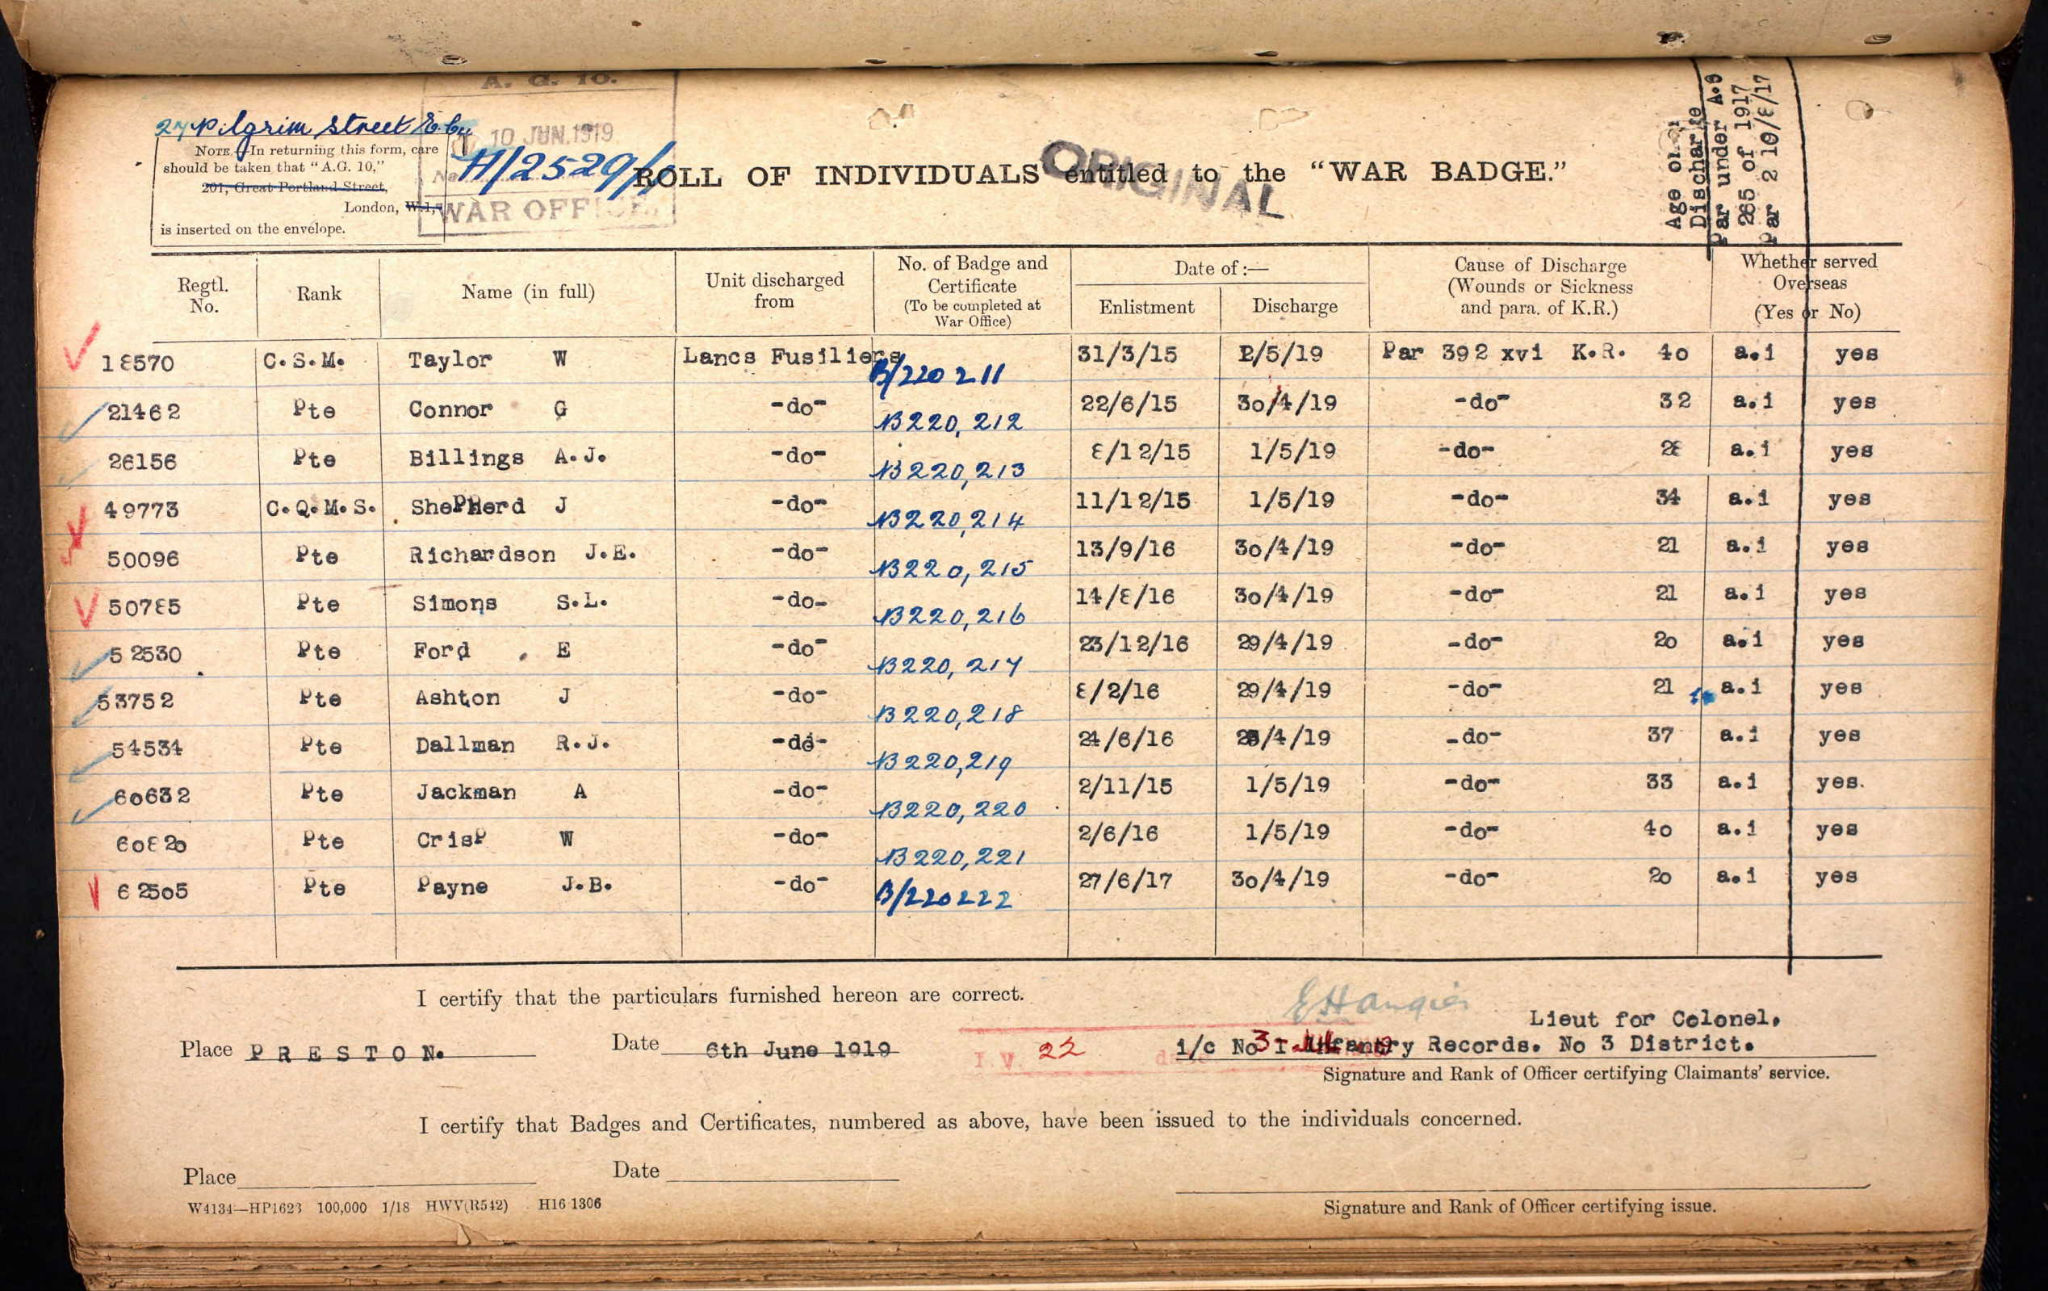 A. G. 10.
27 Pilgrim Street E.C.4
10 JUN. 1919
H/2529/1
WAR OFFICE
NOTE.—In returning this form, care
should be taken that "A.G. 10,"
201, Great Portland Street,
London, W.1,
is inserted on the envelope.
ROLL OF INDIVIDUALS entitled to the "WAR BADGE."
ORIGINAL
Age on
Discharge
Par under A.O
265 of 1917
Par 2 10/8/17
Regtl. No. Rank Name (in full) Unit discharged from No. of Badge and Certificate (To be completed at War Office) Date of:— Enlistment Discharge Cause of Discharge (Wounds or Sickness and para. of K.R.) Whether served Overseas (Yes or No)
18570 C.S.M. Taylor W Lancs Fusiliers B/220211 31/3/15 2/5/19 Par 392 xvi K.R. 40 a.i yes
21462 Pte Connor G -do- B220,212 22/6/15 30/4/19 -do- 32 a.i yes
26156 Pte Billings A.J. -do- B220,213 8/12/15 1/5/19 -do- 28 a.i yes
49773 C.Q.M.S. Shepherd J -do- B220,214 11/12/15 1/5/19 -do- 34 a.i yes
50096 Pte Richardson J.E. -do- B220,215 13/9/16 30/4/19 -do- 21 a.i yes
50785 Pte Simons S.L. -do- B220,216 14/8/16 30/4/19 -do- 21 a.i yes
52530 Pte Ford E -do- B220,217 23/12/16 29/4/19 -do- 20 a.i yes
53752 Pte Ashton J -do- B220,218 8/2/16 29/4/19 -do- 21 a.i yes
54534 Pte Dallman R.J. -do- B220,219 24/6/16 -do- 37 a.i yes
60632 Pte Jackman A -do- B220,220 2/11/15 1/5/19 -do- 33 a.i yes.
60820 Pte Crisp W -do- B220,221 2/6/16 1/5/19 -do- 40 a.i yes
62505 Pte Payne J.B. -do- B/220222 27/6/17 30/4/19 -do- 20 a.i yes
I certify that the particulars furnished hereon are correct.
Lieut for Colonel.
Place PRESTON. Date 6th June 1919 I.V. 22 i/c No I Infantry Records. No 3 District.
Signature and Rank of Officer certifying Claimants' service.
I certify that Badges and Certificates, numbered as above, have been issued to the individuals concerned.
Place Date
W4134—HP1623 100,000 1/18 HWV(R542) H16/1306
Signature and Rank of Officer certifying issue.